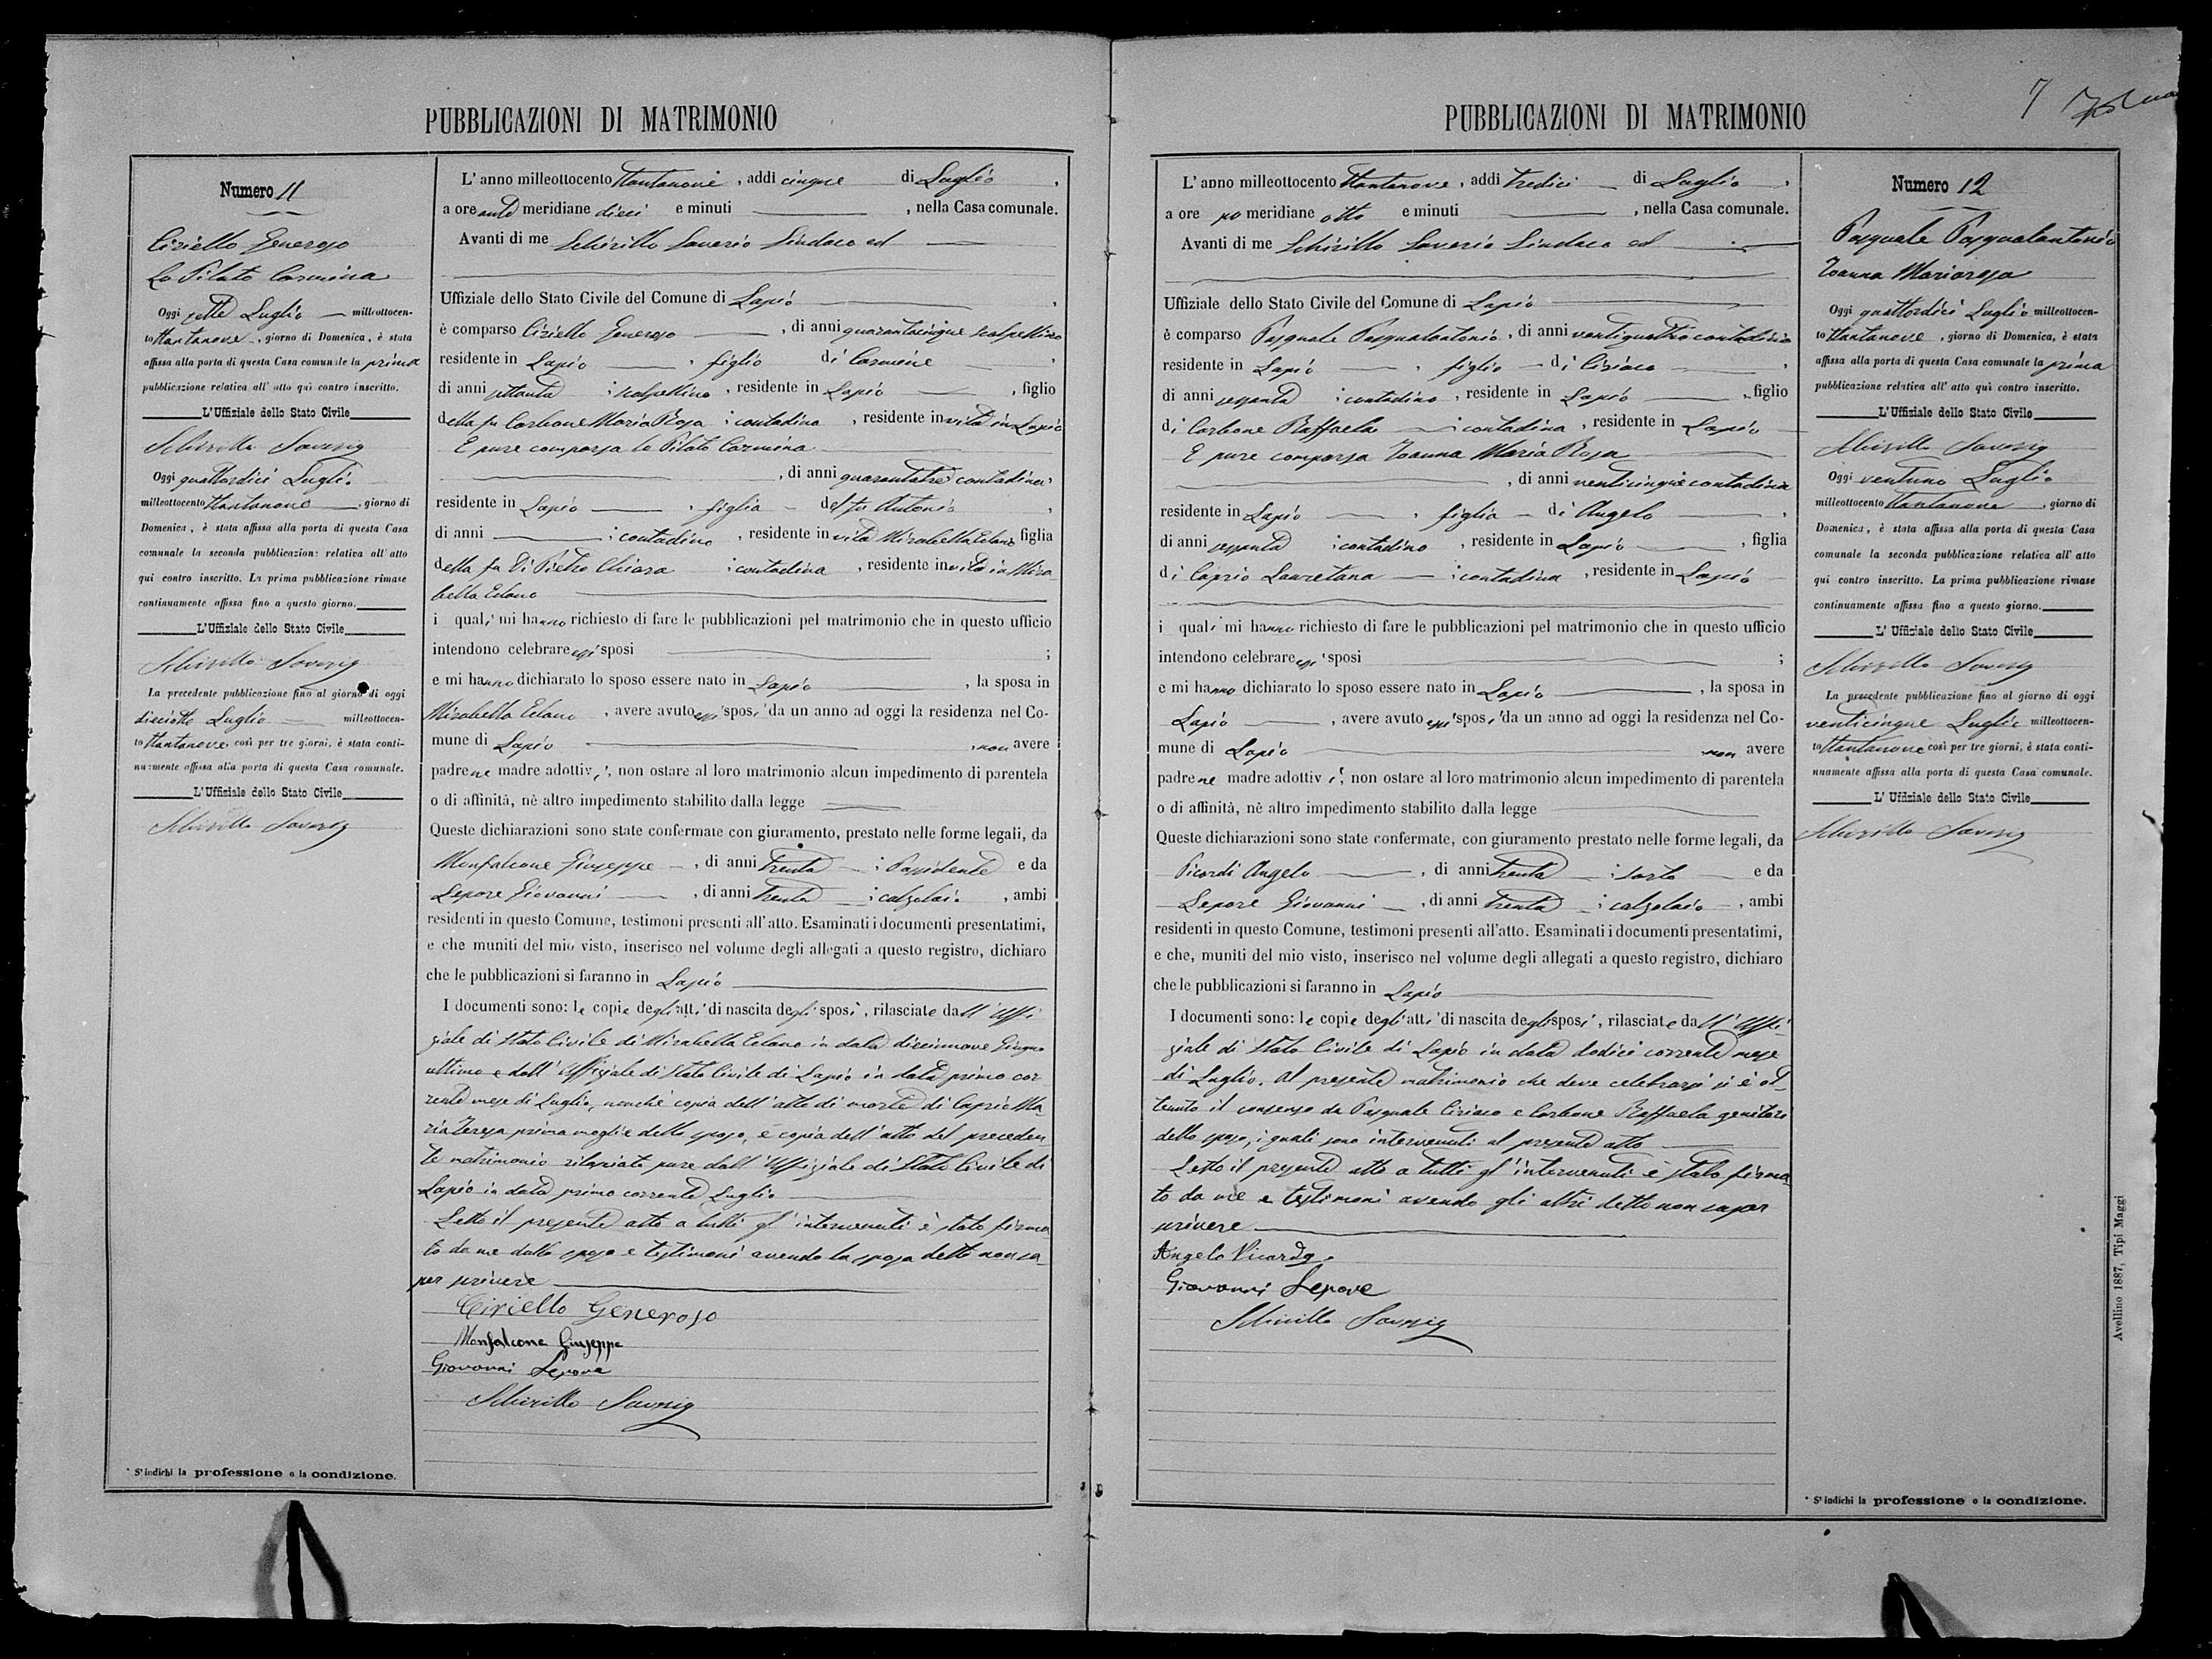 7
PUBBLICAZIONI DI MATRIMONIO
Numero 11
Ciriello Generoso
Lo Pilato Carmina
Oggi sette Luglio milleottocen-
to ttantanove, giorno di Domenica, è stata
affissa alla porta di questa Casa comunale la prima
pubblicazione relativa all' atto quì contro inscritto.
L'Uffiziale dello Stato Civile
Schirillo Saverio
Oggi quattordici Luglio
milleottocento ttantanove, giorno di
Domenica, è stata affissa alla porta di questa Casa
comunale la seconda pubblicazione relativa all' atto
qui contro inscritto. La prima pubblicazione rimase
continuamente affissa fino a questo giorno.
L'Uffiziale dello Stato Civile
Schirillo Saverio
La precedente pubblicazione fino al giorno di oggi
dieciotto Luglio milleottocen-
to ttantanove, così per tre giorni, è stata conti-
nuamente affissa alla porta di questa Casa comunale.
L'Uffiziale dello Stato Civile
Schirillo Saverio
* S'indichi la professione o la condizione.
L' anno milleottocento ttantanove, addi cinque di Luglio,
a ore ante meridiane dieci e minuti, nella Casa comunale.
Avanti di me Schirillo Saverio Sindaco ed
Uffiziale dello Stato Civile del Comune di Lapio,
è comparso Ciriello Generoso, di anni quarantacinque scalpellino
residente in Lapio, figlio di Carmine,
di anni settanta; scalpellino, residente in Lapio, figlio
della fu Carbone Maria Rosa; contadina, residente in vita in Lapio
E pure comparsa Lo Pilato Carmina
, di anni quarantatre contadina
residente in Lapio, figlia del fu Antonio,
di anni; contadino, residente in vita Mirabella Eclano figlia
della fu Di Pietro Chiara; contadina, residente in vita in Mira
bella Eclano
i quali mi hanno richiesto di fare le pubblicazioni pel matrimonio che in questo ufficio
intendono celebrare essi sposi;
e mi hanno dichiarato lo sposo essere nato in Lapio, la sposa in
Mirabella Eclano, avere avuto essi sposi da un anno ad oggi la residenza nel Co-
mune di Lapio, non avere
padre ne madre adottivi, non ostare al loro matrimonio alcun impedimento di parentela
o di affinità, nè altro impedimento stabilito dalla legge
Queste dichiarazioni sono state confermate con giuramento, prestato nelle forme legali, da
Monfalcone Giuseppe, di anni trenta; Possidente e da
Lepore Giovanni, di anni trenta; calzolaio, ambi
residenti in questo Comune, testimoni presenti all'atto. Esaminati i documenti presentatimi,
e che muniti del mio visto, inserisco nel volume degli allegati a questo registro, dichiaro
che le pubblicazioni si faranno in Lapio
I documenti sono: le copie degli atti di nascita degli sposi, rilasciate dall' Uffi
ziale di Stato Civile di Mirabella Eclano in data diecinnove Giugno
ultimo e dall' Uffiziale di Stato Civile di Lapio in data primo cor
rente mese di Luglio, nonchè copia dell' atto di morte di Caprio Ma
ria Teresa prima moglie dello sposo, e copia dell' atto del preceden
te matrimonio rilasciate pure dall' Uffiziale di Stato Civile di
Lapio in data primo corrente Luglio
Letto il presente atto a tutti gl' intervenuti è stato firma
to da me dallo sposo e testimoni avendo la sposa detto non sa
per scrivere
Ciriello Generoso
Monfalcone Giuseppe
Giovanni Lepore
Schirillo Saverio
PUBBLICAZIONI DI MATRIMONIO
L' anno milleottocento ttantanove, addi tredici di Luglio,
a ore po meridiane otto e minuti, nella Casa comunale.
Avanti di me Schirillo Saverio Sindaco ed
Uffiziale dello Stato Civile del Comune di Lapio
è comparso Pasquale Pasqualantonio, di anni ventiquattro contadino
residente in Lapio, figlio di Ciriaco,
di anni sessanta; contadino, residente in Lapio, figlio
di Carbone Raffaela; contadina, residente in Lapio
E pure comparsa Ioanna Maria Rosa
, di anni venticinque contadina
residente in Lapio, figlia di Angelo,
di anni sessanta; contadino, residente in Lapio, figlia
di Caprio Lauretana; contadina, residente in Lapio
i quali mi hanno richiesto di fare le pubblicazioni pel matrimonio che in questo ufficio
intendono celebrare essi sposi;
e mi hanno dichiarato lo sposo essere nato in Lapio, la sposa in
Lapio, avere avuto essi sposi da un anno ad oggi la residenza nel Co-
mune di Lapio non avere
padre ne madre adottivi, non ostare al loro matrimonio alcun impedimento di parentela
o di affinità, nè altro impedimento stabilito dalla legge
Queste dichiarazioni sono state confermate, con giuramento prestato nelle forme legali, da
Picardi Angelo, di anni trenta; sarto e da
Lepore Giovanni, di anni trenta; calzolaio, ambi
residenti in questo Comune, testimoni presenti all'atto. Esaminati i documenti presentatimi,
e che, muniti del mio visto, inserisco nel volume degli allegati a questo registro, dichiaro
che le pubblicazioni si faranno in Lapio
I documenti sono: le copie degli atti di nascita degli sposi, rilasciate dall' Uffi
ziale di Stato Civile di Lapio in data dodici corrente mese
di Luglio. Al presente matrimonio che deve celebrarsi si è ot
tenuto il consenso da Pasquale Ciriaco e Carbone Raffaela genitori
dello sposo, i quali sono intervenuti al presente atto
Letto il presente atto a tutti gl' intervenuti è stato firma
to da me e testimoni avendo gli altri detto non saper
scrivere
Angelo Picardi
Giovanni Lepore
Schirillo Saverio
Numero 12
Pasquale Pasqualantonio
Ioanna Mariarosa
Oggi quattordici Luglio milleottocen-
to ttantanove, giorno di Domenica, è stata
affissa alla porta di questa Casa comunale la prima
pubblicazione relativa all' atto quì contro inscritto.
L'Uffiziale dello Stato Civile
Schirillo Saverio
Oggi ventuno Luglio
milleottocento ttantanove, giorno di
Domenica, è stata affissa alla porta di questa Casa
comunale la seconda pubblicazione relativa all' atto
quì contro inscritto. La prima pubblicazione rimase
continuamente affissa fino a questo giorno.
L' Uffiziale dello Stato Civile
Schirillo Saverio
La precedente pubblicazione fino al giorno di oggi
venticinque Luglio milleottocen-
to ttantanove così per tre giorni, è stata conti-
nuamente affissa alla porta di questa Casa comunale.
L' Uffiziale dello Stato Civile
Schirillo Saverio
* S'indichi la professione o la condizione.
Avellino 1887, Tipi Maggi